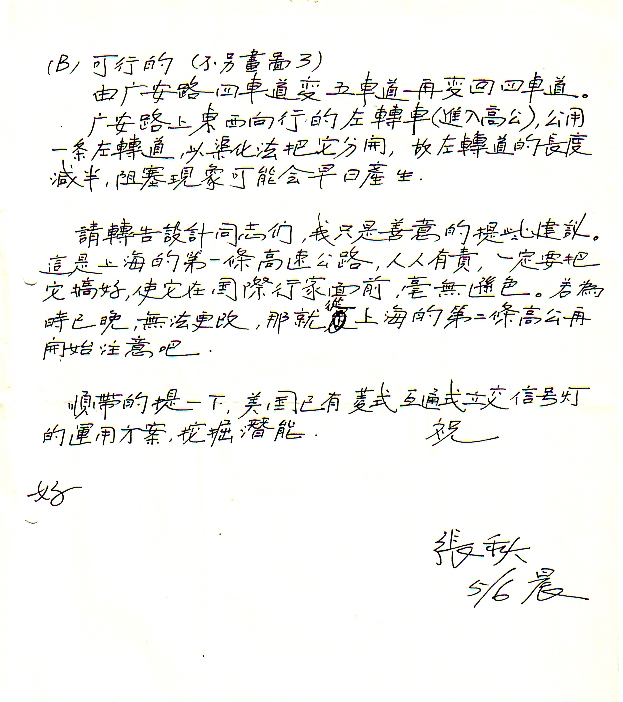 (B) 可行的 (不另畫圖了)
由广安路一四車道变五車道再变回四車道。
广安路上東西向行的左轉車(進入高公),公用
一条左轉道,以渠化法把它分開,故左轉道的長度
減半,阻塞現象可能会早日產生.
請轉告設計同志们,我只是善意的提些建议。
這是上海的第一條高速公路,人人有責,一定要把
它搞好,使它在国際行家面前,毫無遜色。若為
時已晚,無法更改,那就從上海的第二條高公再
開始注意吧.
順帶的提一下,美国已有菱式互通式立交信号灯
的運用方案,挖掘潛能. 祝
好
張秋
5/6 晨